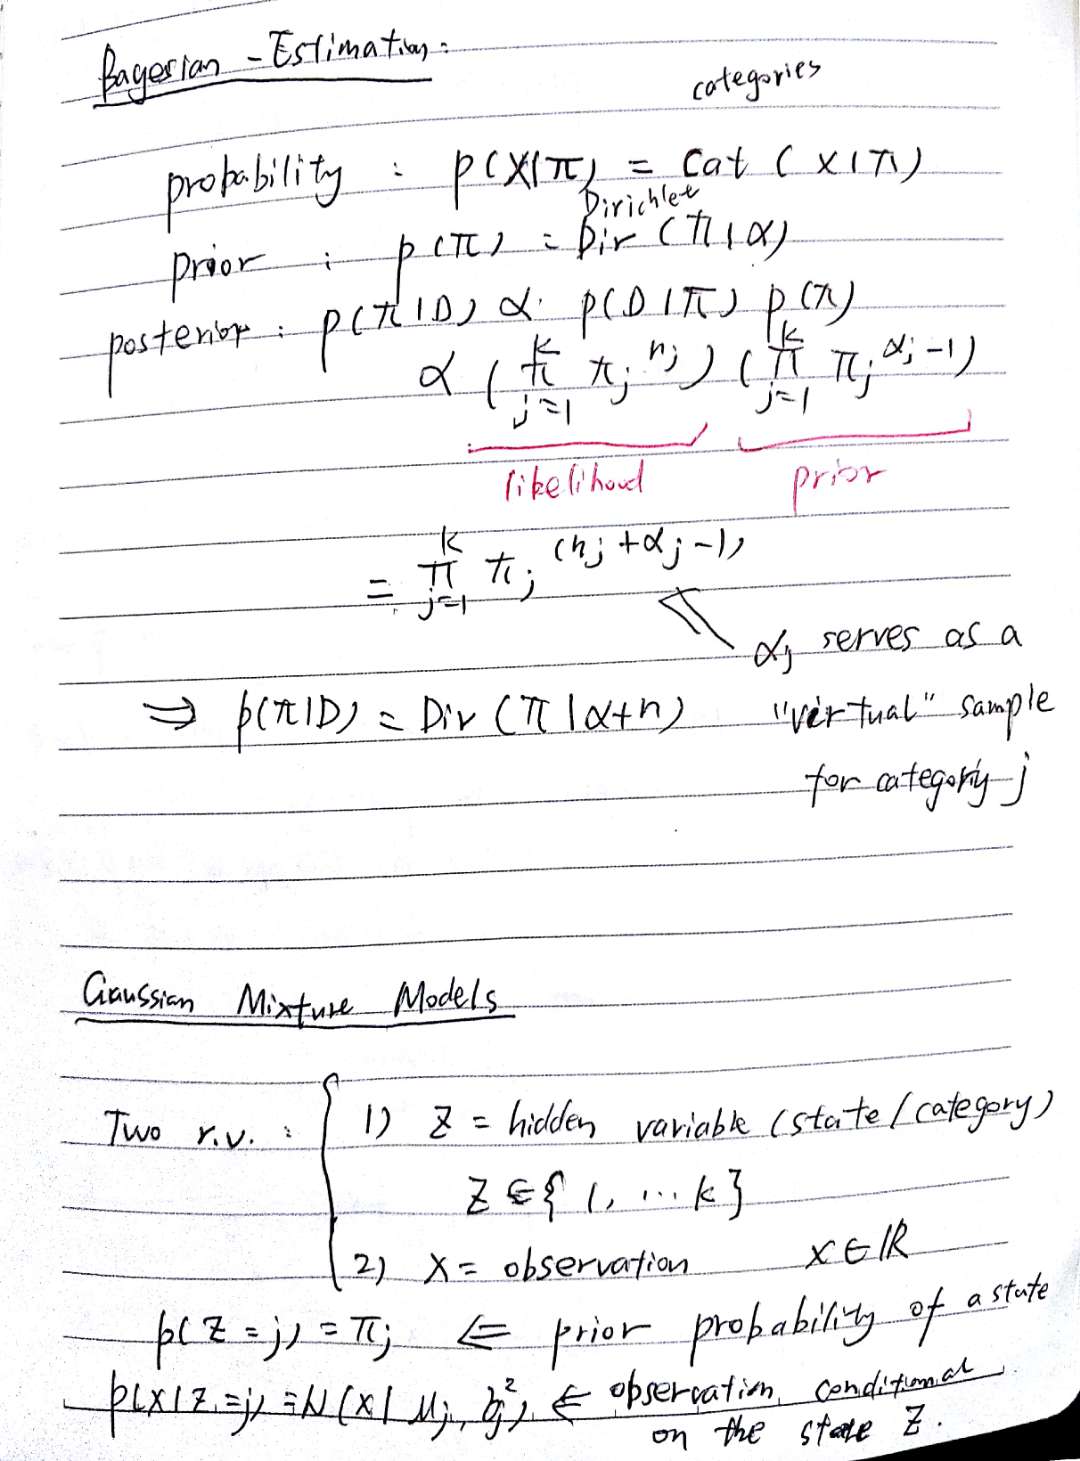 Bayesian - Estimation :
categories
probability : p(X|π) = Cat (x|π)
Dirichlet
prior : p(π) = Dir (π|α)
posterior : p(π|D) α p(D|π) p(π)
α (∏_{j=1}^{K} π_j^{n_j}) (∏_{j=1}^{K} π_j^{α_j-1})
likelihood prior
= ∏_{j=1}^{K} π_j^{(n_j+α_j-1)}
α_j serves as a
⇒ p(π|D) = Dir (π|α+n) "virtual" sample
for category j
Gaussian Mixture Models
Two r.v. : { 1) Z = hidden variable (state/category)
Z ∈ { 1, ... k }
2) X = observation X ∈ ℝ
p(Z=j) = π_j ⇐ prior probability of a state
p(X|Z=j) = N(X|μ_j, σ_j^2) ⇐ observation conditional
on the state Z.